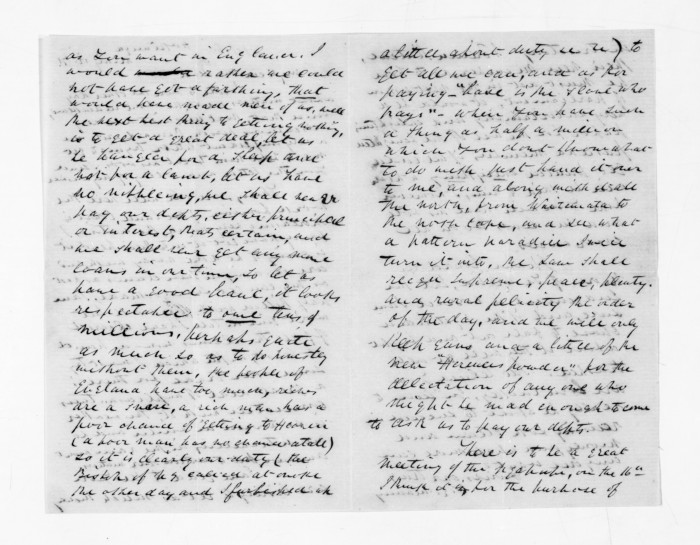 as you want in England. I
would rather we could
not have got a farthing, that
would have made men of us, well
the next best thing to getting nothing,
is to get a great deal, let us
be hanged for a sheep and
not for a lamb, let us have
no nibbleing, we shall never
pay our debts, either principal
or interest, thats certain, and
we shall never get any more
loans in our time, so let us
have a good haul, it looks
respectable to owe tens of
millions, perhaps quite
as much so as to do honestly
without them, the people of
England have too much, riches
are a snare, a rich man has a
poor chance of getting to Heaven
(a poor man has no chance at all)
so it is clearly our duty (the
Bishop of
the other day and I furbished up
a little about duty &c &c) to
get all we can, and as for
paying "base is the slave who
pays" - When you have such
a thing as half a million
which you dont know what
to do with just hand it over
to me, and along with it all
the north, from Waitemata to
the north cape, and see what
a pattern paradise I will
turn it into, the law shall
reign supreme, peace, plenty.
and rural felicity the order
of the day, and we will only
keep guns and a little of the
new "Hercules powder" for the
delectation of any one who
might be mad enough to come
to ask us to pay our debts.
There is to be a great
meeting of the Ngapuhi, on the
I think it is, for the purpose of